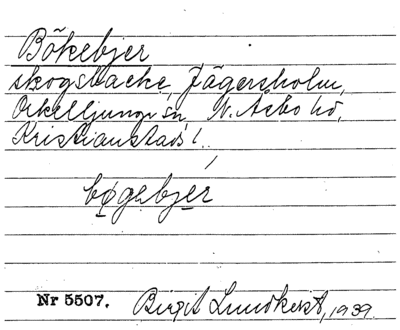 Bökebjer
skogsbacke, Jägersholm,
Örkelljunga sn, N. Åsbo hd,
Kristianstads l.
bøgebjer
Nr 5507. Birgit Lundkvist, 1939.